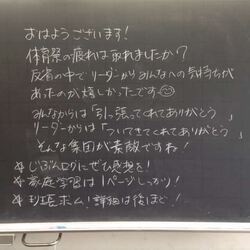 おはようございます!
体育祭の疲れは取れましたか?
反省の中でリーダーからみんなへの気持ちが
あったのが嬉しかったです☺
みんなからは「引っ張ってくれてありがとう」
リーダーからは「ついてきてくれてありがとう」
そんな集団が素敵ですね!
☆じぶんログにぜひ感想を!
☆家庭学習は1ページしっかり!
☆ホム!詳細は後ほど!